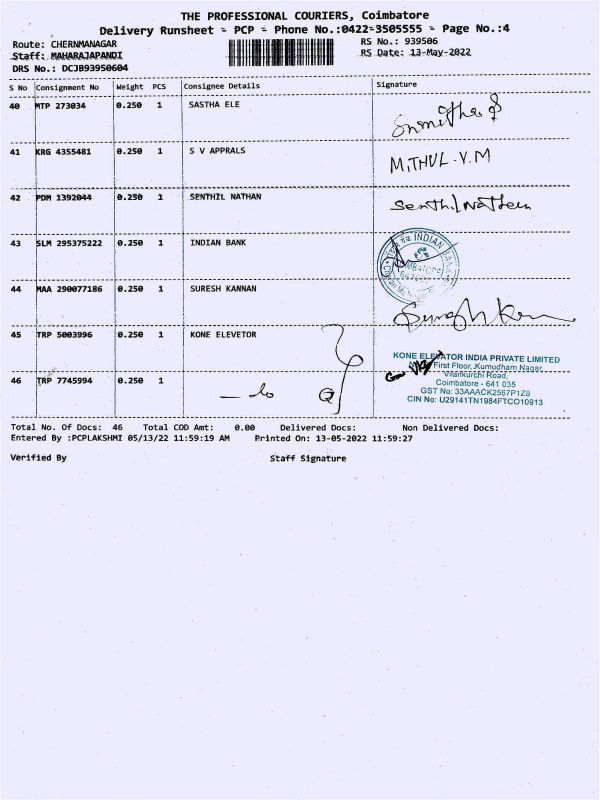 THE PROFESSIONAL COURIERS, Coimbatore
Delivery Runsheet - PCP - Phone No.:0422-3505555 - Page No.:4
Route: CHERNMANAGAR
RS No.: 939506
Staff: MAHARAJAPANDI
RS Date: 13-May-2022
DRS No.: DCJB93950604
S No Consignment No Weight PCS Consignee Details Signature
40 MTP 273034 0.250 1 SASTHA ELE
41 KRG 4355481 0.250 1 S V APPRALS MITHUL.V.M
42 PDM 1392044 0.250 1 SENTHIL NATHAN Senthil Nathan
43 SLM 295375222 0.250 1 INDIAN BANK
INDIAN
44 MAA 290077186 0.250 1 SURESH KANNAN
45 TRP 5003996 0.250 1 KONE ELEVETOR
KONE ELEVATOR INDIA PRIVATE LIMITED
First Floor, Kumudham Nagar,
Vilankurchi Road,
Coimbatore - 641 035
GST No: 33AAACK2567P1Z8
CIN No: U29141TN1984FTCO10913
46 TRP 7745994 0.250 1 - do
Total No. Of Docs: 46 Total COD Amt: 0.00 Delivered Docs: Non Delivered Docs:
Entered By :PCPLAKSHMI 05/13/22 11:59:19 AM Printed On: 13-05-2022 11:59:27
Verified By Staff Signature